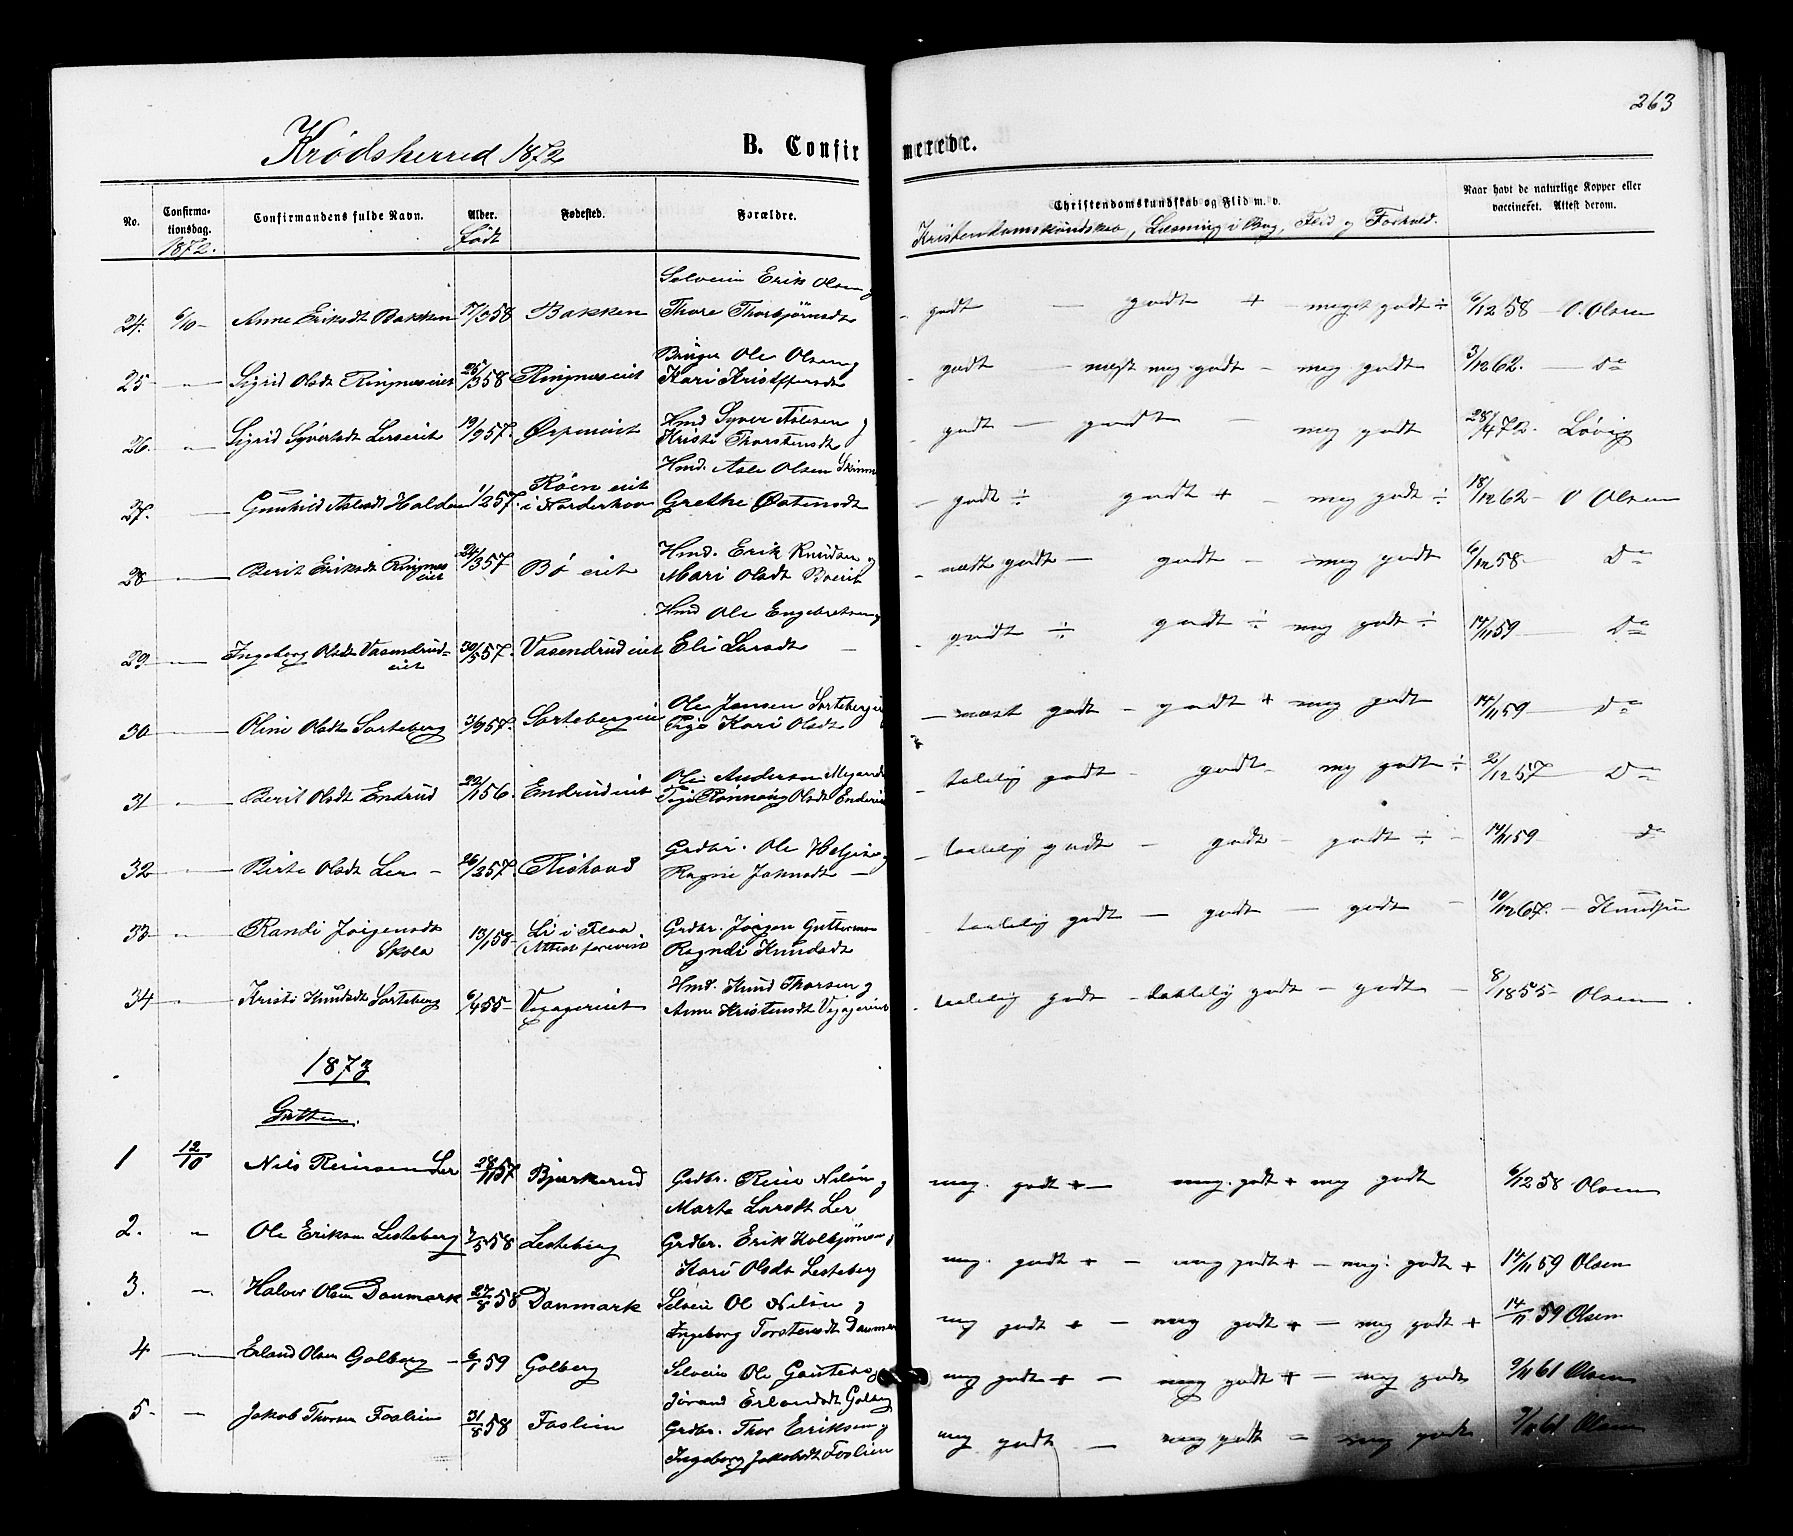 263
Krødsherred 1872
B. Confirmerede.
No.
Confirmationsdag.
1872.
Confirmandens fulde Navn.
Alder.
Født
Fødested.
Forældre.
Christendomskundskab og Flid m. v.
Kristendomskundskab, Læsning i Bog, Flid og Forhold.
Naar havt de naturlige Kopper eller vaccineret. Attest derom.
24. 6/10 – Anne Eriksdt Bakken 17/358 Bakken Selveier Erik Olsen og
Thore Thorbjørnsdt godt — godt + – meget godt ÷ 6/1258 – O. Olsen
25 – " – Sigrid Olsdt Ringneseiet 25/358 Ringneseiet Ole Olsen og
Kari Kristoffersdt godt – næst meg godt – meg godt 3/1262. – Do
26. " Sigrid Syvertsdt Lerseiet 19/957. Ørpeneiet Hmd Syver Aslesen og
Kristi Thorstensdt godt – godt – meg godt 28/472. Løvig
27. — Gunhild Aslesdt Halden 1/257. Røen eiet i Norderhov Hmd. Asle Olsen
Grethe Østensdt – godt ÷ godt + – meg godt ÷ 18/1262 – O Olsen
28 — Berit Eriksdt Ringneseiet 24/357 Bø eiet Hmd. Erik Knudsen og
Mari Olsdt Bøeiet næst godt – godt – meg godt 6/1258 – Do
29 — Ingeborg Olsdt Vasendrudeiet 30/557. Vasendrudeiet Hmd Ole Engebretsen og
Eli Larsdt – godt ÷ godt ÷ meg godt ÷ 14/1159 — Do
30 — Oline Olsdt Sorteberg 3/957. Sortebergeiet Ole Jensen
Pige Kari Olsdt – næst godt – godt + meg godt 14/1159 – Do
31 — Berit Olsdt Endrud 22/156. Endrudeiet Ole Andersen
Pige Rønnaug Olsdt – talelig godt – godt – meg godt ÷ 2/1257 — Do
32 — Birte Olsdt Ler – 26/257. Rishovd Grdbr. Ole Helgesen og
Ragne – taalelig godt – godt – godt ÷ – 14/1159 do
33 " Randi Jørgensdt
Skola 13/158 – Li i Flaa
(Attest forevist Grdbr. Jørgen Guttormsen
Ragndi Knudsdt taalelig godt – godt – godt – 10/1267. – Knudsen
34 — Kristi Knudsdt Sorteberg 6/455 – Hmd. Knud Thorsen og
Anne Kristensdt taalelig godt – taalelig godt – godt – 8/1855 – Olsen
1873
Gutter.
1 12/10 Nils Reiersen Ler 28/1157 Bjærkerud Grdbr. Reier Nilsen og
Marte Larsdt Ler meg. godt + – meg. godt + meg godt 6/1258 Olsen
2. " Ole Eriksen Lesteberg 7/558 Lesteberg Grdbr. Erik Kolbjørnsen og
Kari Olsdt Lesteberg meg. godt + – meg godt + – meg. godt + 14/1159 Olsen
3. " Halvor Olsen Danmark 27/858 Danmark Selveier Ol Nilsen og
Ingeborg Torstensdt meg godt + – meg godt + – meg godt + 14/1159 Olsen
4 — Erland Olsen Golberg – 6/159 Golberg Selveier Ole
Jørand Erlandsdt Golberg meg godt + – meg godt + – meg godt 9/1161 Olsen
5. " Jakob Thorsen Foslien 31/858 Foslien Grdbr. Thor Eriksen og
Ingeborg Jakobsdt Foslien meg godt – meg godt – meg godt 9/1161 Olsen